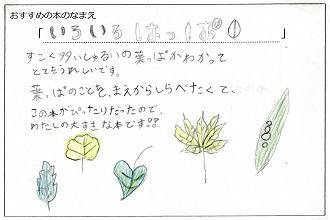 おすすめの本のなまえ
「いろいろはっぱ」
すごく多いしゅるいの葉っぱがわかって
とてもうれしいです。
葉っぱのことを、まえからしらべたくて、
この本がぴったりだったので、
わたしの大すきな本です!!